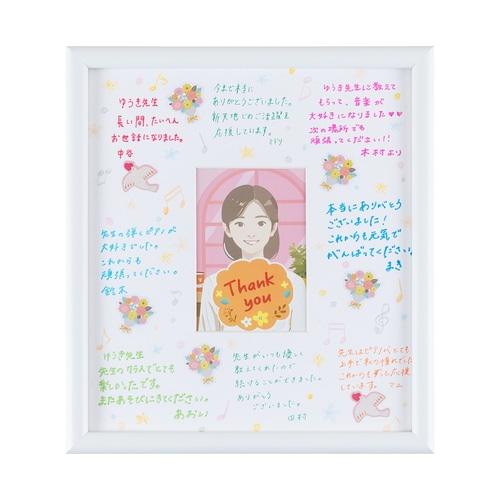 ゆうき先生
長い間、たいへん
お世話になりました。
中谷
今まで本当に
ありがとうございました。
新天地でのご活躍を
応援しています。
ゆうき先生に教えて
もらって、音楽が
大好きになりました♥♥
次の場所でも
頑張ってください!!
木村より
先生の弾くピアノが
大好きでした。
これからも
頑張ってください。
鈴木
Thank
you
本当にありがとう
ございました!
これからも元気で
がんばってください。
まき
ゆうき先生
先生のクラスとても
楽しかったです。
またあそびにきてください。
あおい
先生がいつも優しく
教えてくれたので
続けることができました。
ありがとう
ございました。
田村
先生はピアノがとても
上手で私の憧れでした
これからもずっと応援
しています。